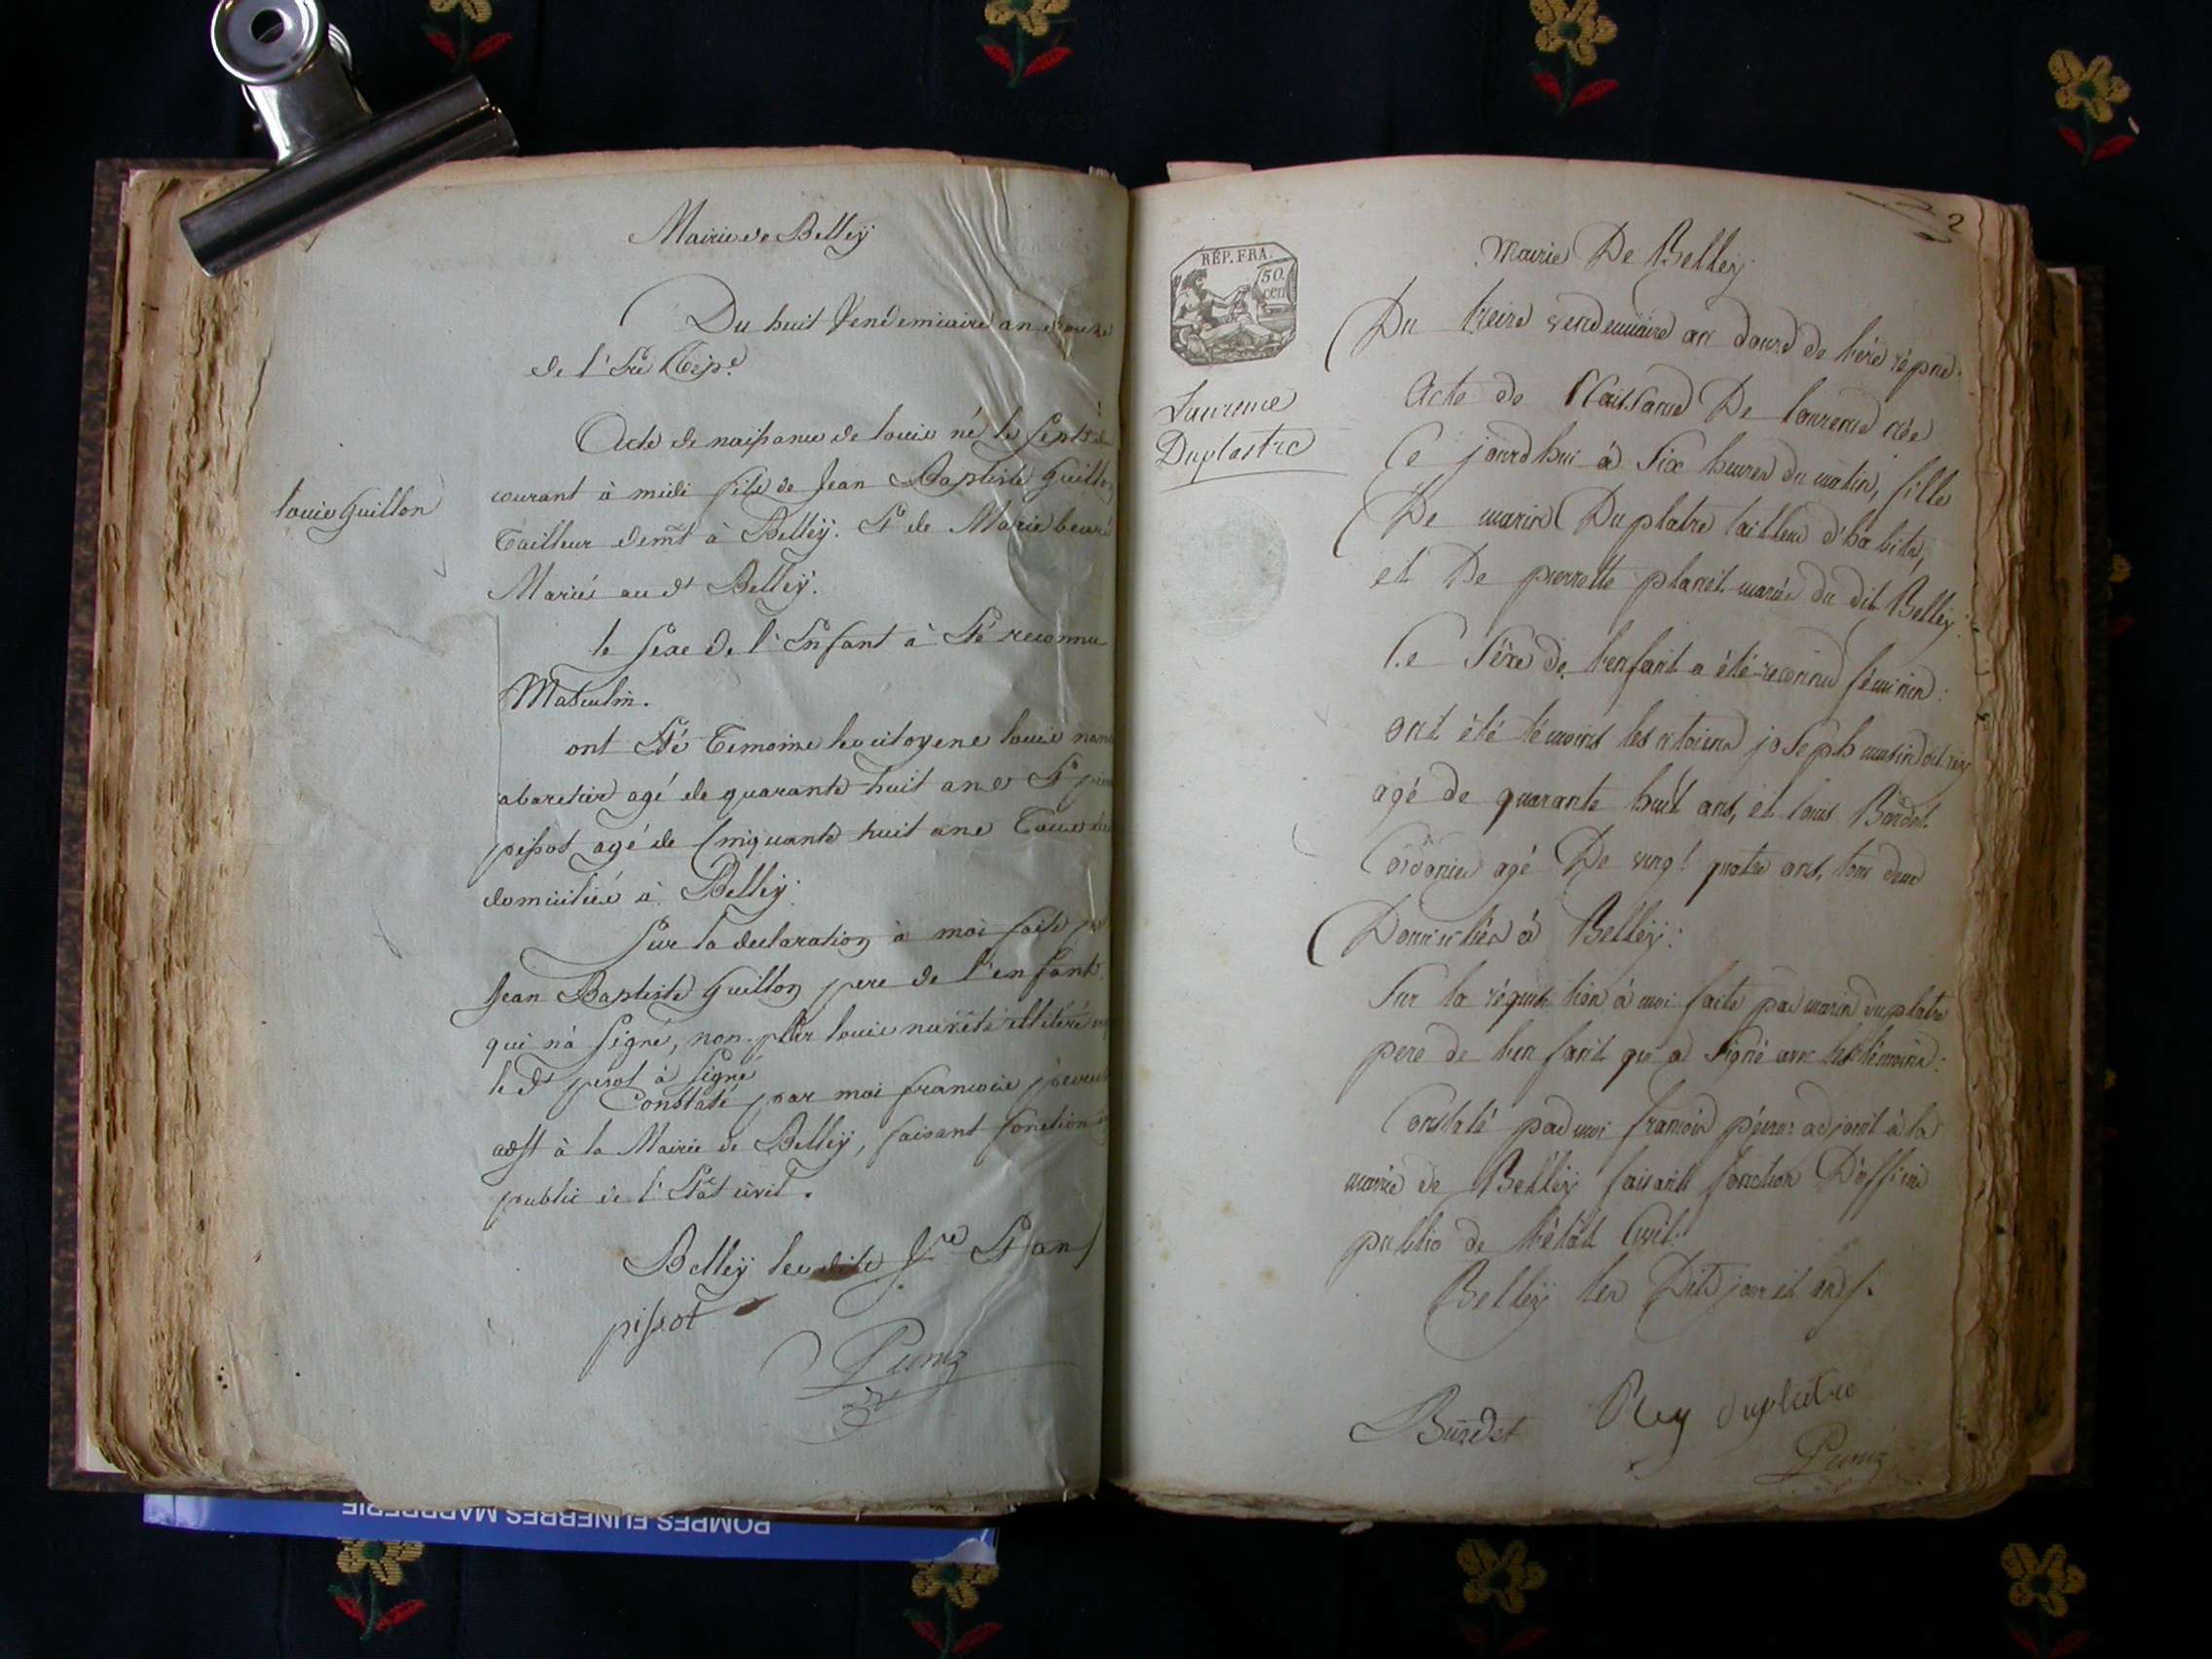 Mairie de Belley
Du huit Vendemiaire an douze
de l'Ere Rep.e
Acte de naissance de louis né le sept du
courant à midi fils de Jean Baptiste Guillon
Tailleur demt à Belley. Et de Marie
Mariés au dt Belley.
le sexe de l'Enfant à Eté reconnu
Masculin.
ont Eté Temoins les citoyens louis
cabaretier agé de quarante huit ans Et
pissot agé de Cinquante huit ans Tous deux
domiciliés à Belley.
Sur la declaration à moi faite par
Jean Baptiste Guillon pere de l'enfant
qui n'à signé, non plus louis illiteré
le dt pissot à signé
Constaté par moi françois
adjt à la Mairie de Belley, faisant fonction
public de l'Etat civil.
Belley les dits Jrs Et an
pissot
louis Guillon
2
Mairie De Belley
RÉP. FRA.
50. cent
Laurence
Duplastre
Du treize vendemiaire an douze de l'ère répne.
Acte de Naissance De laurence née
Ce jourdhui à Six heures du matin, fille
De marin Duplatre tailleur d'habits,
et De pierrette planet mariés du dit Belley:
Le Séxe de l'enfant a été reconnu féminin:
ont été témoins les citoiens joseph dit rey
agé de quarante huit ans, et louis Bordet
Cordonier agé De vingt quatre ans, tous deux
Domiciliés à Belley:
Sur la réquisition à moi faite par marin duplatre
pere de l'enfant qui a signé avec les témoins:
Constaté par moi françois adjoint à la
mairie de Belley faisant fonction D'officier
public de l'état Civil.
Belley les Dits jour et an
Burdet Rey duplatre
POMPES FUNEBRES MARBRERIE